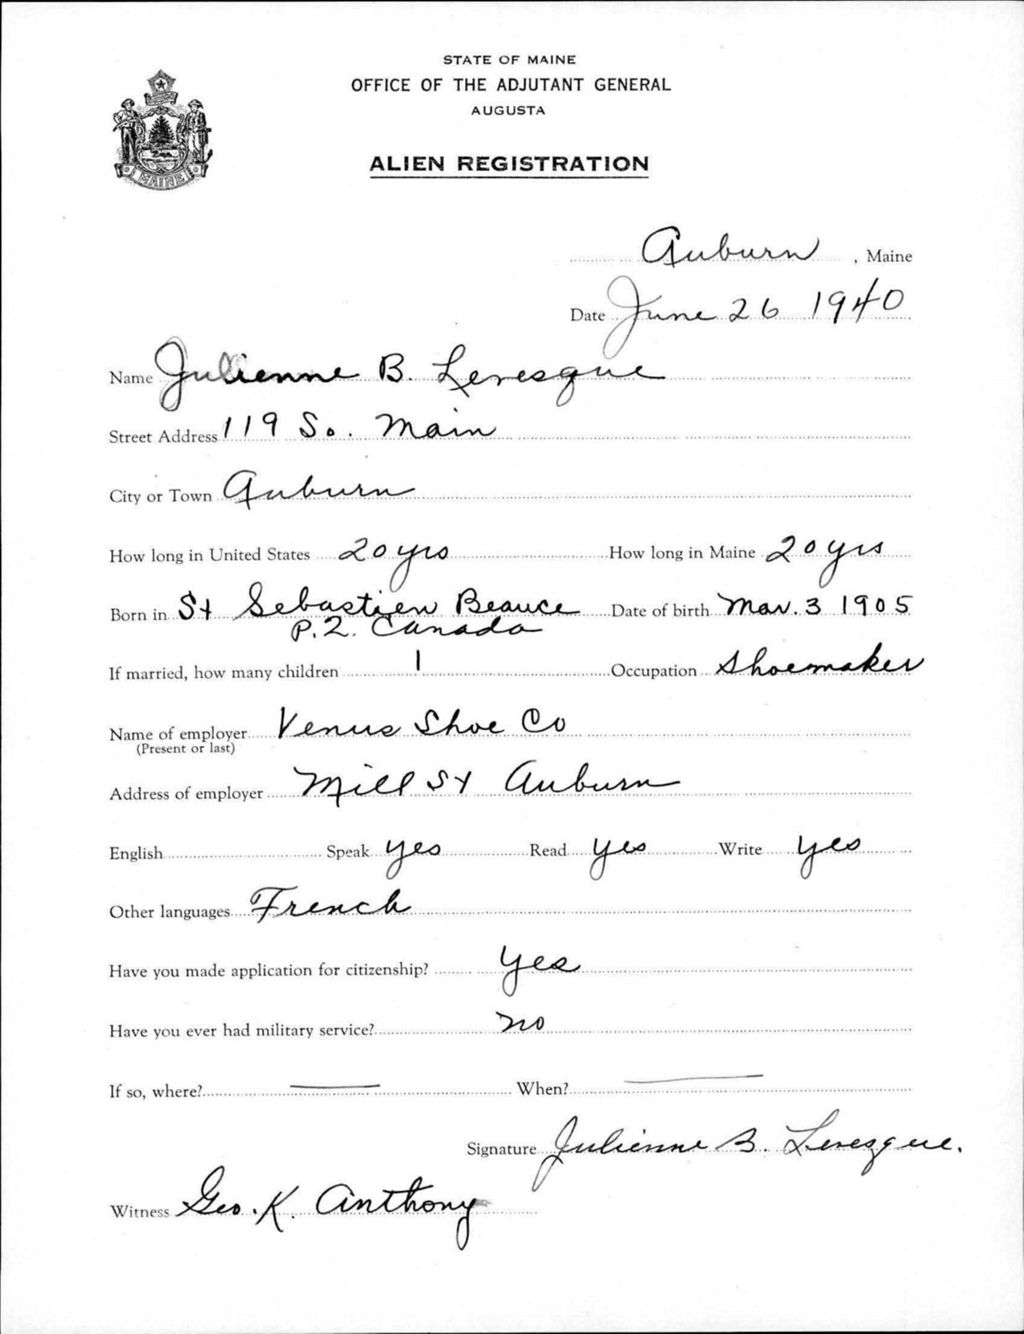 STATE OF MAINE
OFFICE OF THE ADJUTANT GENERAL
AUGUSTA
ALIEN REGISTRATION
MAINE
Auburn, Maine
Date June 26 1940
Name Julienne B. Levesque
Street Address 119 So. Main
City or Town Auburn
How long in United States 20 yrs How long in Maine 20 yrs
Born in St Sebastien Beauce Date of birth Mar. 3 1905
P.Q. Canada
If married, how many children 1 Occupation Shoemaker
Name of employer Venus Shoe Co
(Present or last)
Address of employer Mill St Auburn
English Speak yes Read yes Write yes
Other languages French
Have you made application for citizenship? yes
Have you ever had military service? no
If so, where? — When? —
Signature Julienne B. Levesque.
Witness Geo. K. Anthony